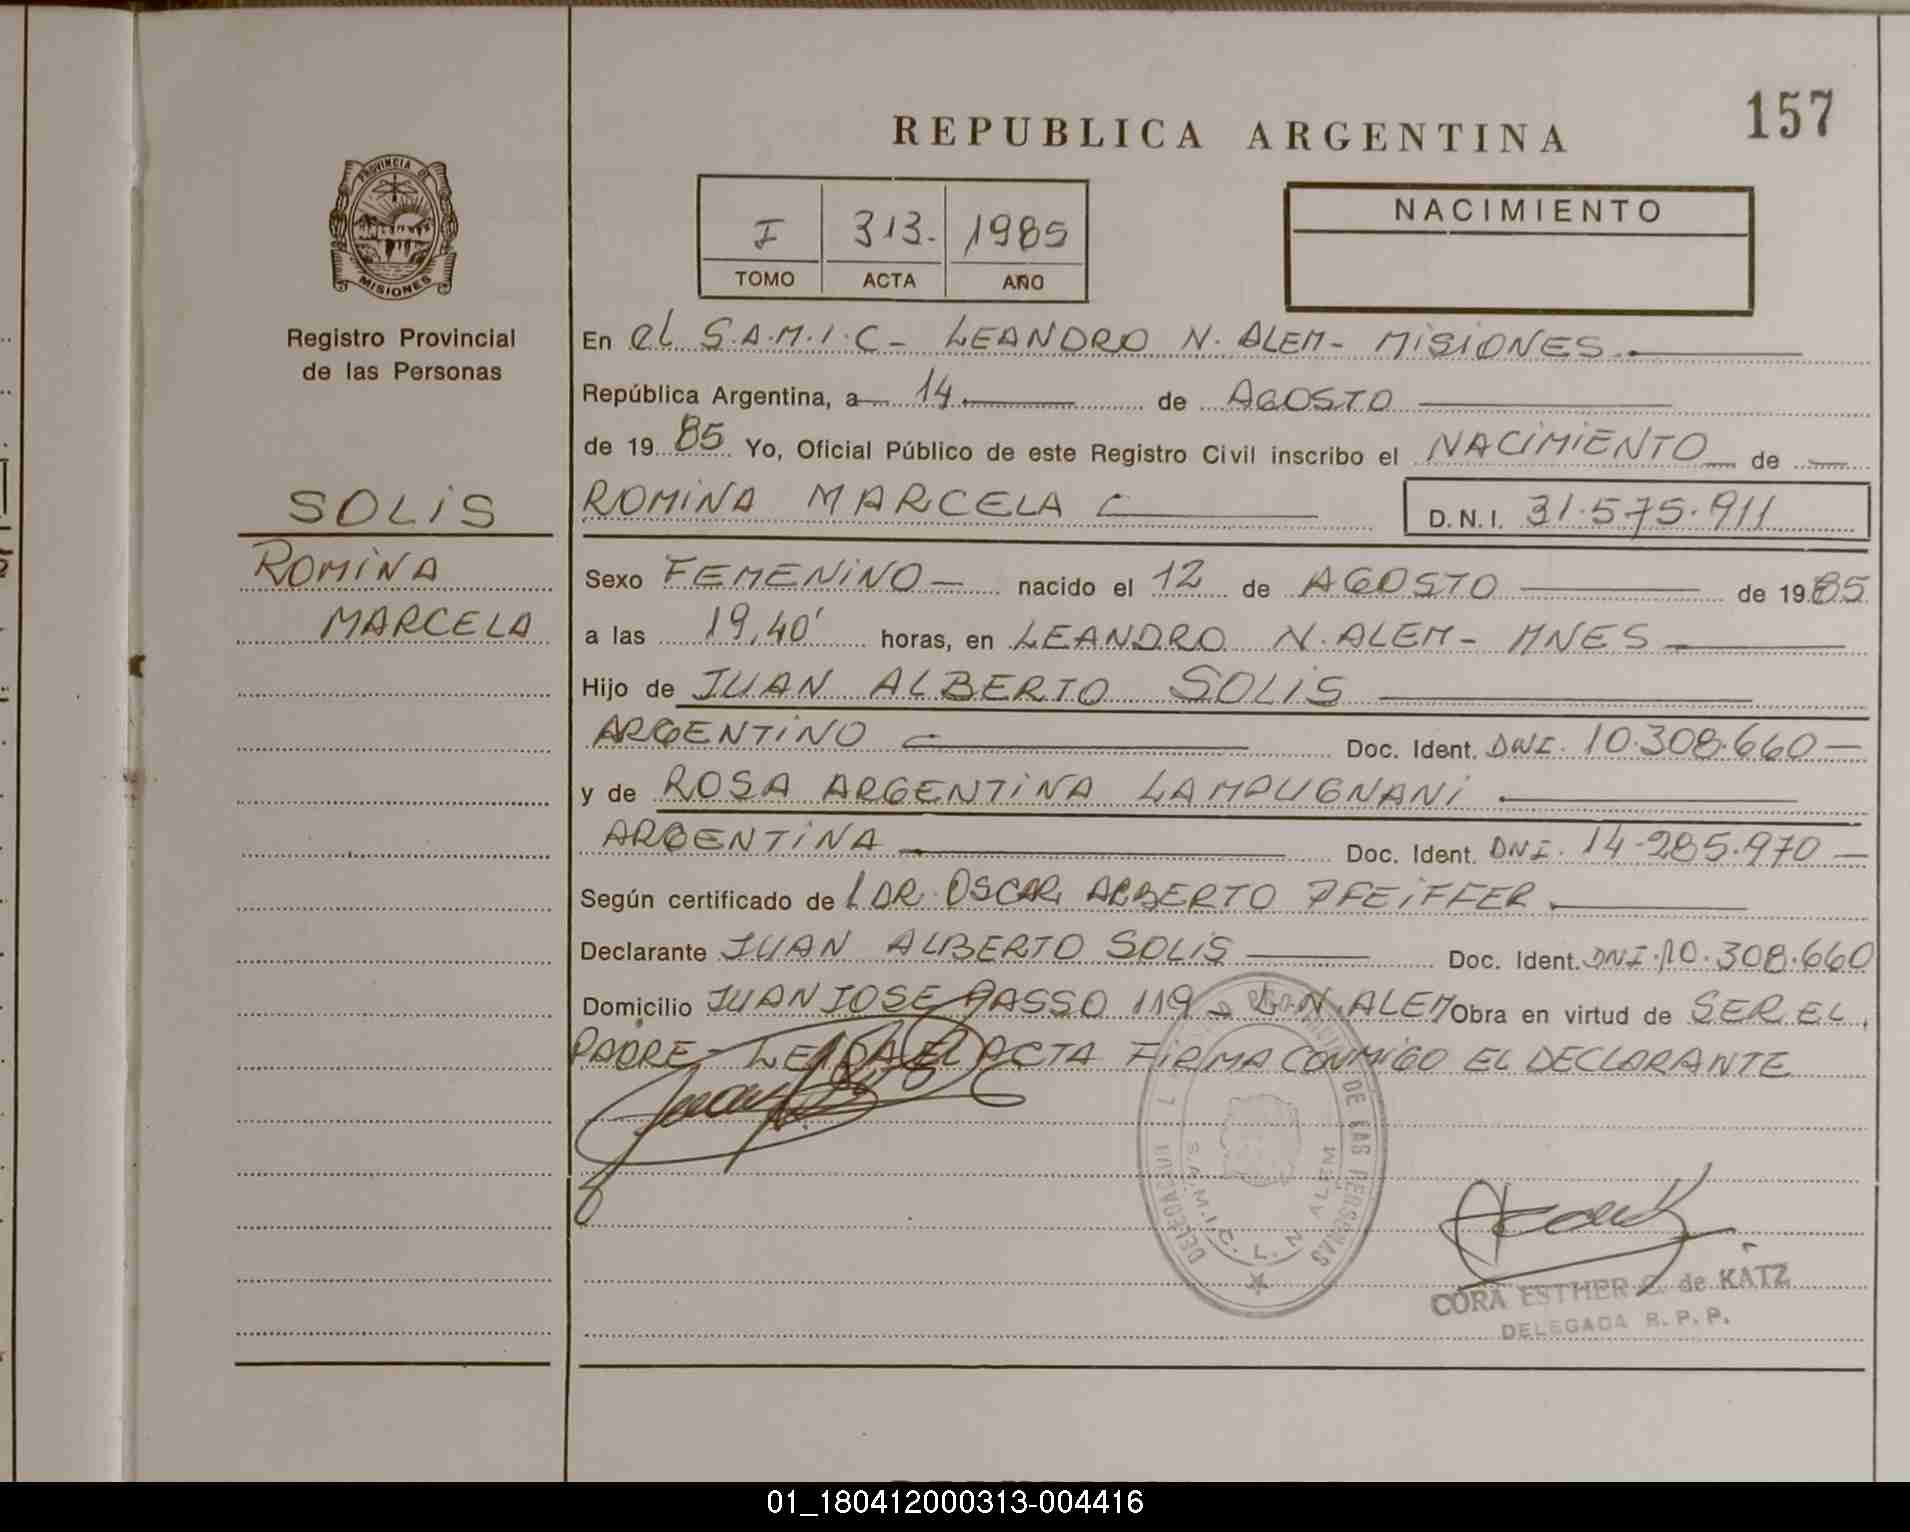 157
REPUBLICA ARGENTINA
PROVINCIA DE
MISIONES
Registro Provincial
de las Personas
I 313. 1985
TOMO ACTA AÑO
NACIMIENTO
SOLIS
ROMINA
MARCELA
En el S.A.M.I.C- LEANDRO N. ALEM- MISIONES.
República Argentina, a 14 de AGOSTO
de 19 85 Yo, Oficial Público de este Registro Civil inscribo el NACIMIENTO de
ROMINA MARCELA D.N.I. 31.575.911
Sexo FEMENINO- nacido el 12 de AGOSTO de 19 85
a las 19,40' horas, en LEANDRO N. ALEM- MNES
Hijo de JUAN ALBERTO SOLIS
ARGENTINO Doc. Ident. DNI. 10.308.660-
y de ROSA ARGENTINA LAMPUGNANI
ARGENTINA Doc. Ident. DNI. 14.285.970-
Según certificado de DR. OSCAR ALBERTO PFEIFFER.
Declarante JUAN ALBERTO SOLIS Doc. Ident. DNI. 10.308.660
Domicilio JUAN JOSE PASSO 119 - L.N. ALEM Obra en virtud de SER EL
PADRE- LEIDA EL ACTA FIRMA CONMIGO EL DECLARANTE
DE LAS PERSONAS
S.A.M.I.C. L. N. ALEM
CORA ESTHER C. de KATZ
DELEGADA R.P.P.
01_180412000313-004416